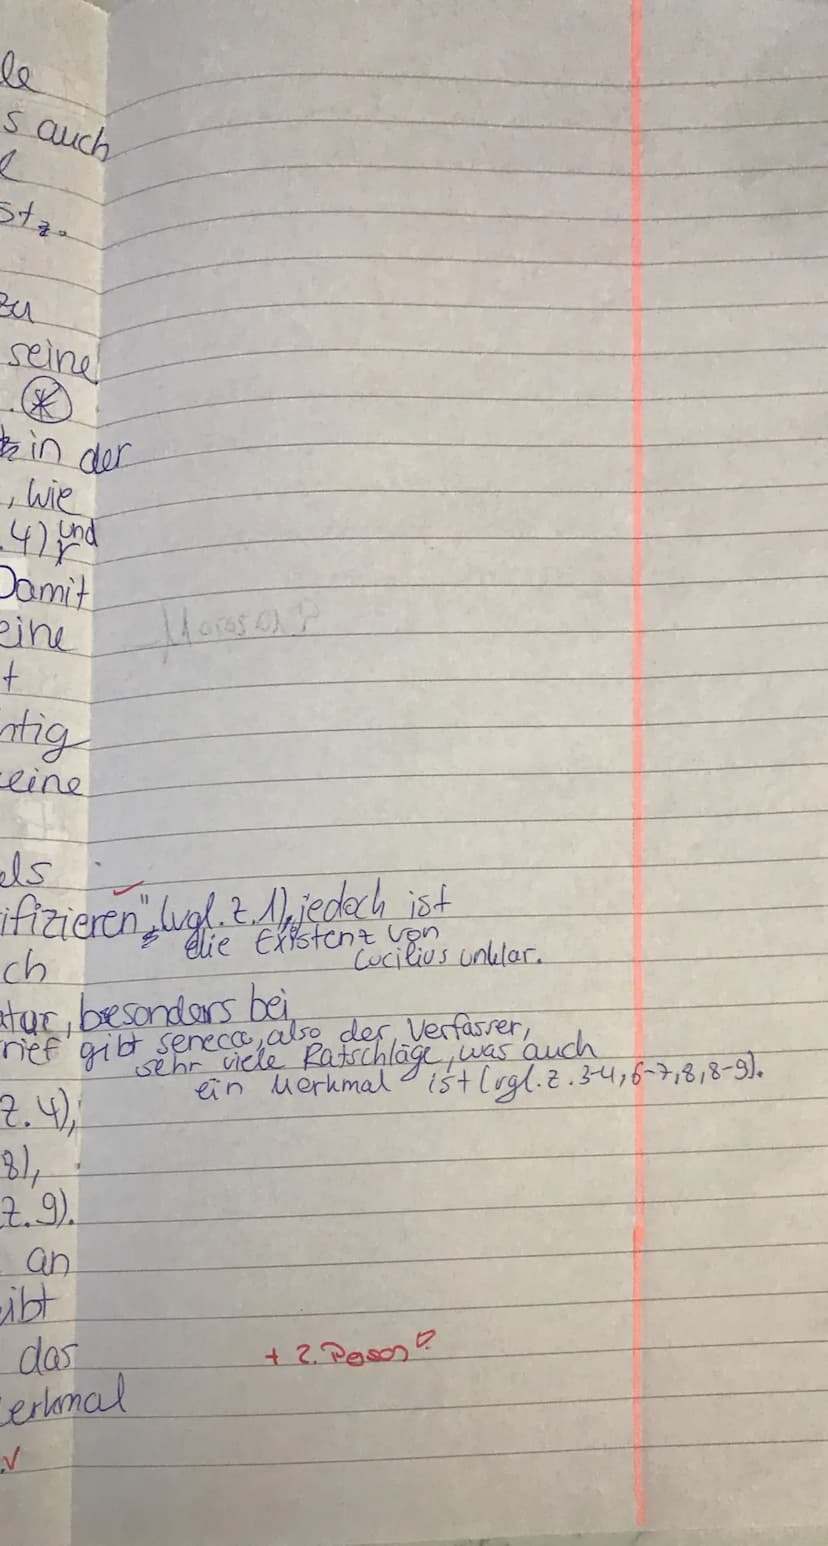 le
s auch
l
stz.
zu
seine
. *
in der
, wie
.4) und
Damit
eine
t
htig
eine
els
ifizieren", (vgl. Z. 1), jedoch ist
die Existenz von
Lucilius unklar.
ch
atur, besonders bei
rief gibt Seneca, also der Verfasser,
sehr viele Ratschläge, was auch
ein Merkmal ist (vgl. Z. 3-4, 6-7, 8, 8-9).
Z. 4),
8),
Z. 9).
an
ibt
das
+ 2. Person
erkmal